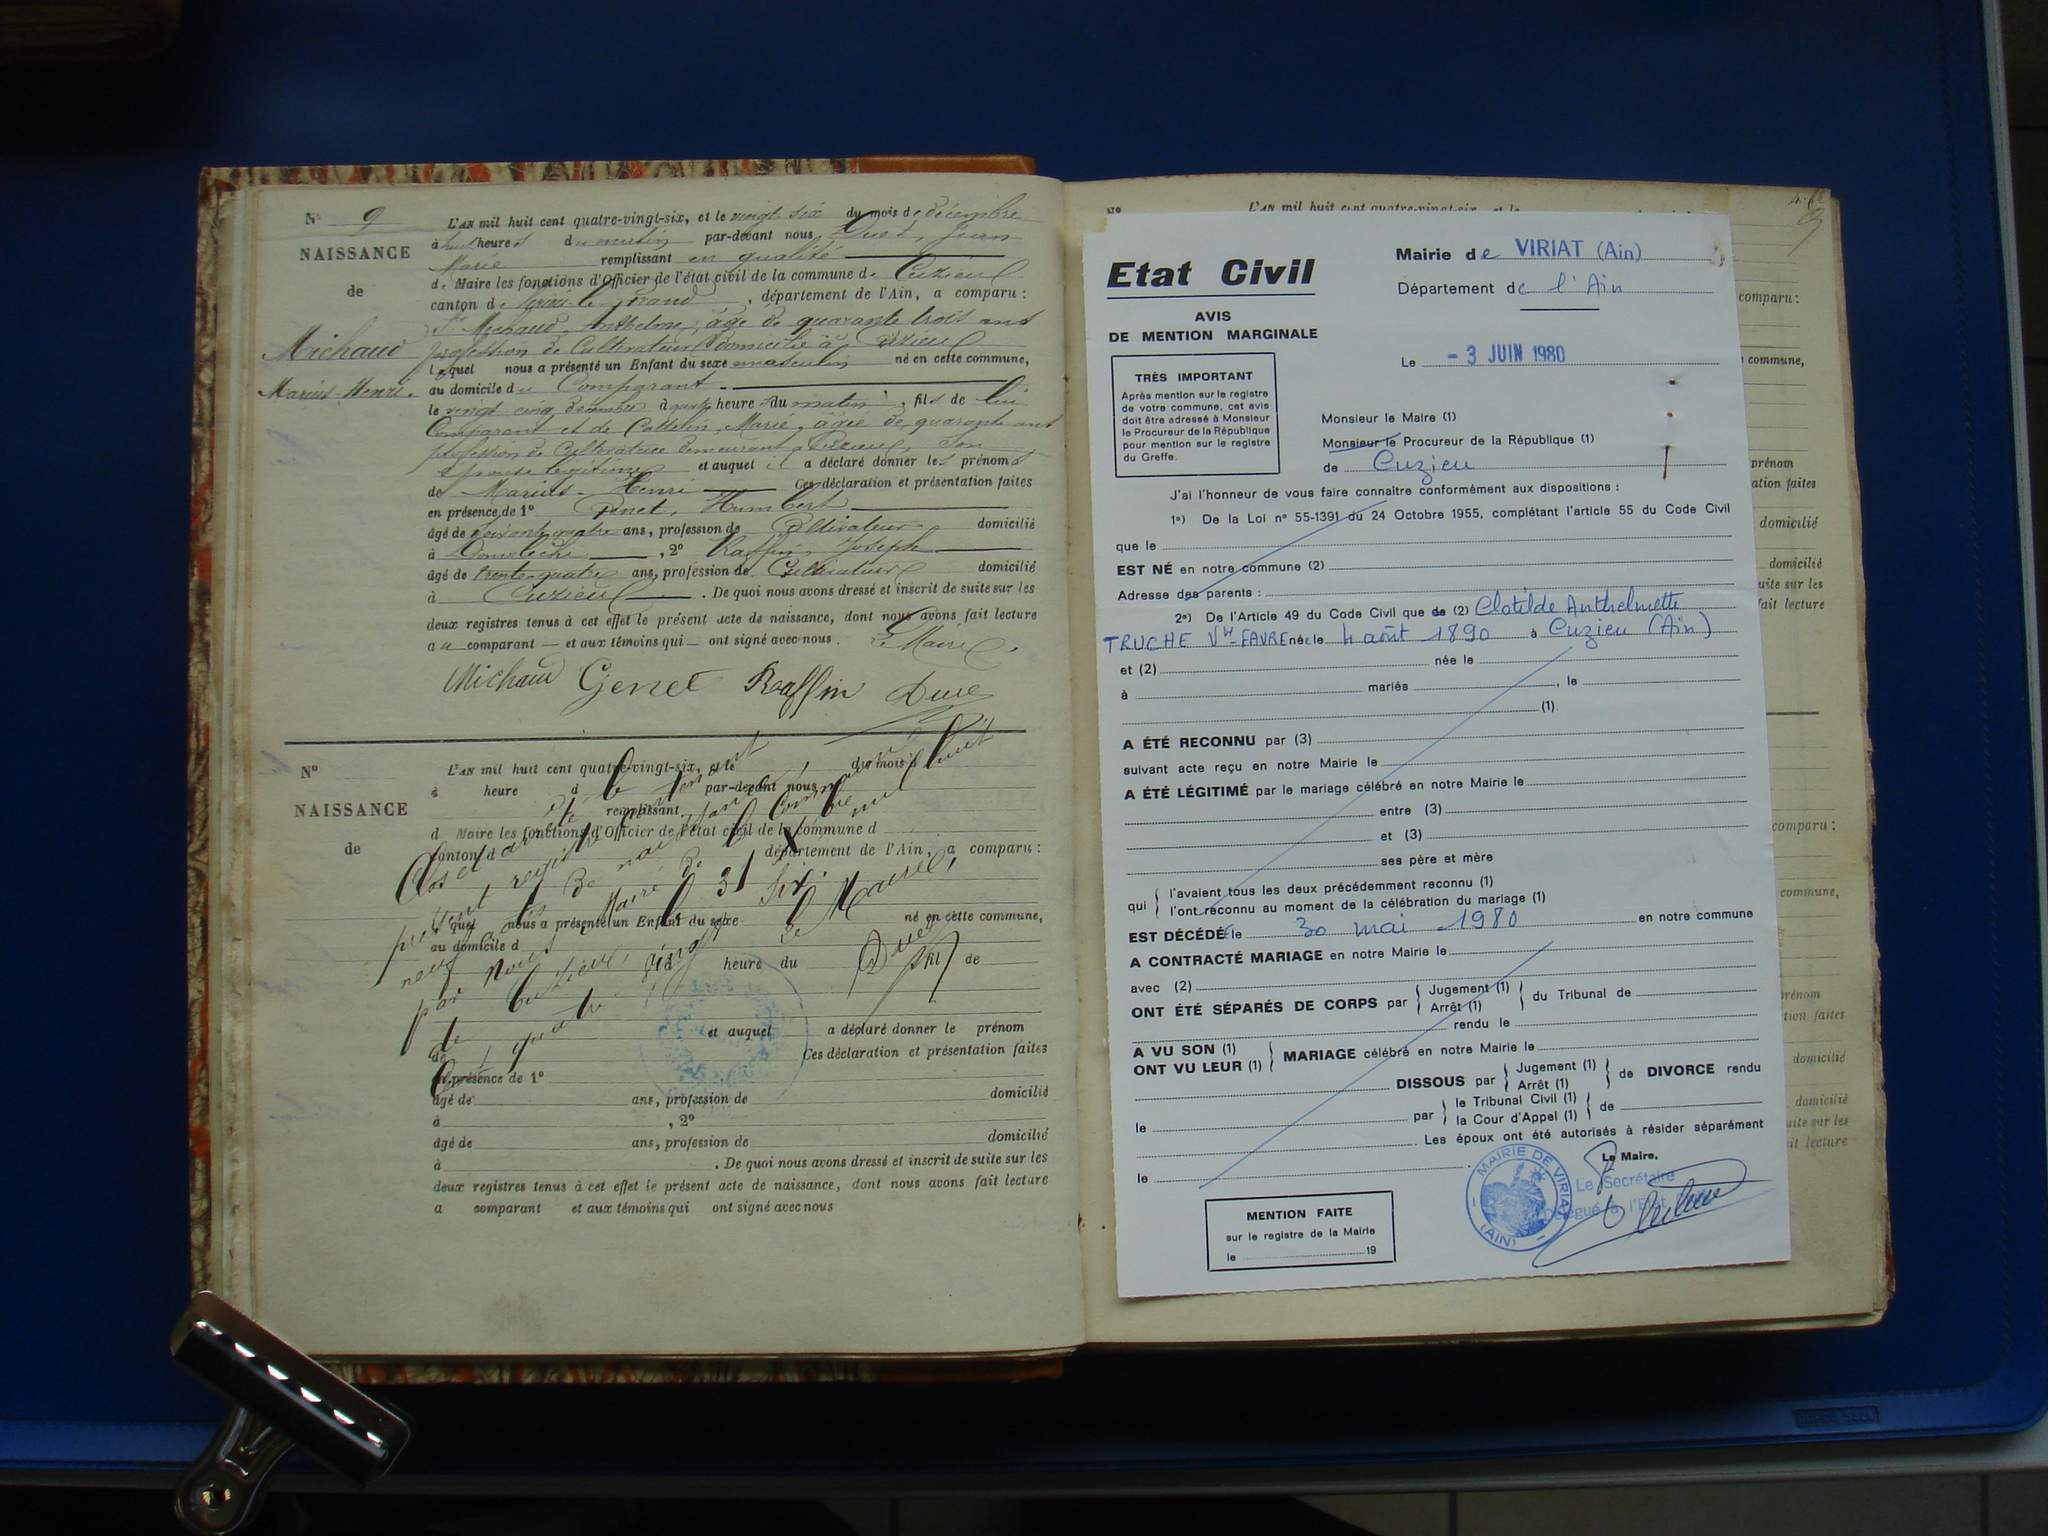 N° 9
NAISSANCE
de
Michaud
Marius-Henri.
L'AN mil huit cent quatre-vingt-six, et le vingt six du mois de décembre
à huit heures du matin par-devant nous, Duet, Jean
Marie remplissant en qualité
de Maire les fonctions d'Officier de l'état civil de la commune de Cuzieu
canton de Virieu-le-Grand, département de l'Ain, a comparu :
Sr Michaud, Anthelme, âgé de quarante trois ans
profession de Cultivateur domicilié à Cuzieu
lequel nous a présenté un Enfant du sexe masculin né en cette commune,
au domicile du Comparant
le vingt cinq décembre à quatre heures du matin, fils de lui
Comparant et de Marie, âgée de quarante ans
profession de Cultivatrice demeurant à Cuzieu, son
épouse légitime et auquel il a déclaré donner les prénoms
de Marius-Henri Ces déclaration et présentation faites
en présence de 1° Genet, Humbert
âgé de soixante quatre ans, profession de Cultivateur domicilié
à , 2° Raffin, Joseph
âgé de trente-quatre ans, profession de Cultivateur domicilié
à Cuzieu . De quoi nous avons dressé et inscrit de suite sur les
deux registres tenus à cet effet le présent acte de naissance, dont nous avons fait lecture
au comparant — et aux témoins qui — ont signé avec nous. Le Maire,
Michaud Genet Raffin Duet
N°
NAISSANCE
de
L'AN mil huit cent quatre-vingt-six, et le du mois d
à heure d par-devant nous
remplissant
d Maire les fonctions d'Officier de l'état civil de la commune d
canton d département de l'Ain, a comparu :
lequel nous a présenté un Enfant du sexe né en cette commune,
au domicile d
heure du fil de
et auquel a déclaré donner le prénom
de Ces déclaration et présentation faites
en présence de 1°
âgé de ans, profession de domicilié
à , 2°
âgé de ans, profession de domicilié
à . De quoi nous avons dressé et inscrit de suite sur les
deux registres tenus à cet effet le présent acte de naissance, dont nous avons fait lecture
a comparant et aux témoins qui ont signé avec nous
Clos et arrêté le
présent registre
de naissance
par nous Maire de la Commune
de Cuzieu, le 31
quatre vingt six.
Le Maire,
Duet
L'AN mil huit cent quatre-vingt-six, et le
Etat Civil
AVIS
DE MENTION MARGINALE
Mairie de VIRIAT (Ain)
Département de l'Ain
Le - 3 JUIN 1980
TRÈS IMPORTANT
Après mention sur le registre
de votre commune, cet avis
doit être adressé à Monsieur
le Procureur de la République
pour mention sur le registre
du Greffe.
Monsieur le Maire (1)
Monsieur le Procureur de la République (1)
de Cuzieu
J'ai l'honneur de vous faire connaître conformément aux dispositions :
1°) De la Loi n° 55-1391 du 24 Octobre 1955, complétant l'article 55 du Code Civil
que le
EST NÉ en notre commune (2)
Adresse des parents :
2°) De l'Article 49 du Code Civil que de (2) Clotilde Anthelmette
TRUCHE Vve FAVRE née le 4 août 1890 à Cuzieu (Ain)
et (2) née le
à mariés , le
(1)
A ÉTÉ RECONNU par (3)
suivant acte reçu en notre Mairie le
A ÉTÉ LÉGITIMÉ par le mariage célébré en notre Mairie le
entre (3)
et (3)
ses père et mère
qui { l'avaient tous les deux précédemment reconnu (1)
l'ont reconnu au moment de la célébration du mariage (1)
EST DÉCÉDÉE le 30 mai 1980 en notre commune
A CONTRACTÉ MARIAGE en notre Mairie le
avec (2)
ONT ÉTÉ SÉPARÉS DE CORPS par { Jugement (1) Arrêt (1) } du Tribunal de
rendu le
A VU SON (1)
ONT VU LEUR (1) } MARIAGE célébré en notre Mairie le
DISSOUS par { Jugement (1) Arrêt (1) } de DIVORCE rendu
le par { le Tribunal Civil (1) la Cour d'Appel (1) } de
. Les époux ont été autorisés à résider séparément
le .
Le Maire,
Le Secrétaire
Délégué à l'Etat
MAIRIE DE VIRIAT
(AIN)
MENTION FAITE
sur le registre de la Mairie
le 19
comparu :
commune,
prénom
ation faites
domicilié
domicilié
uite sur les
fait lecture
comparu :
commune,
prénom
tion faites
domicilié
domicilié
uite sur les
it lecture